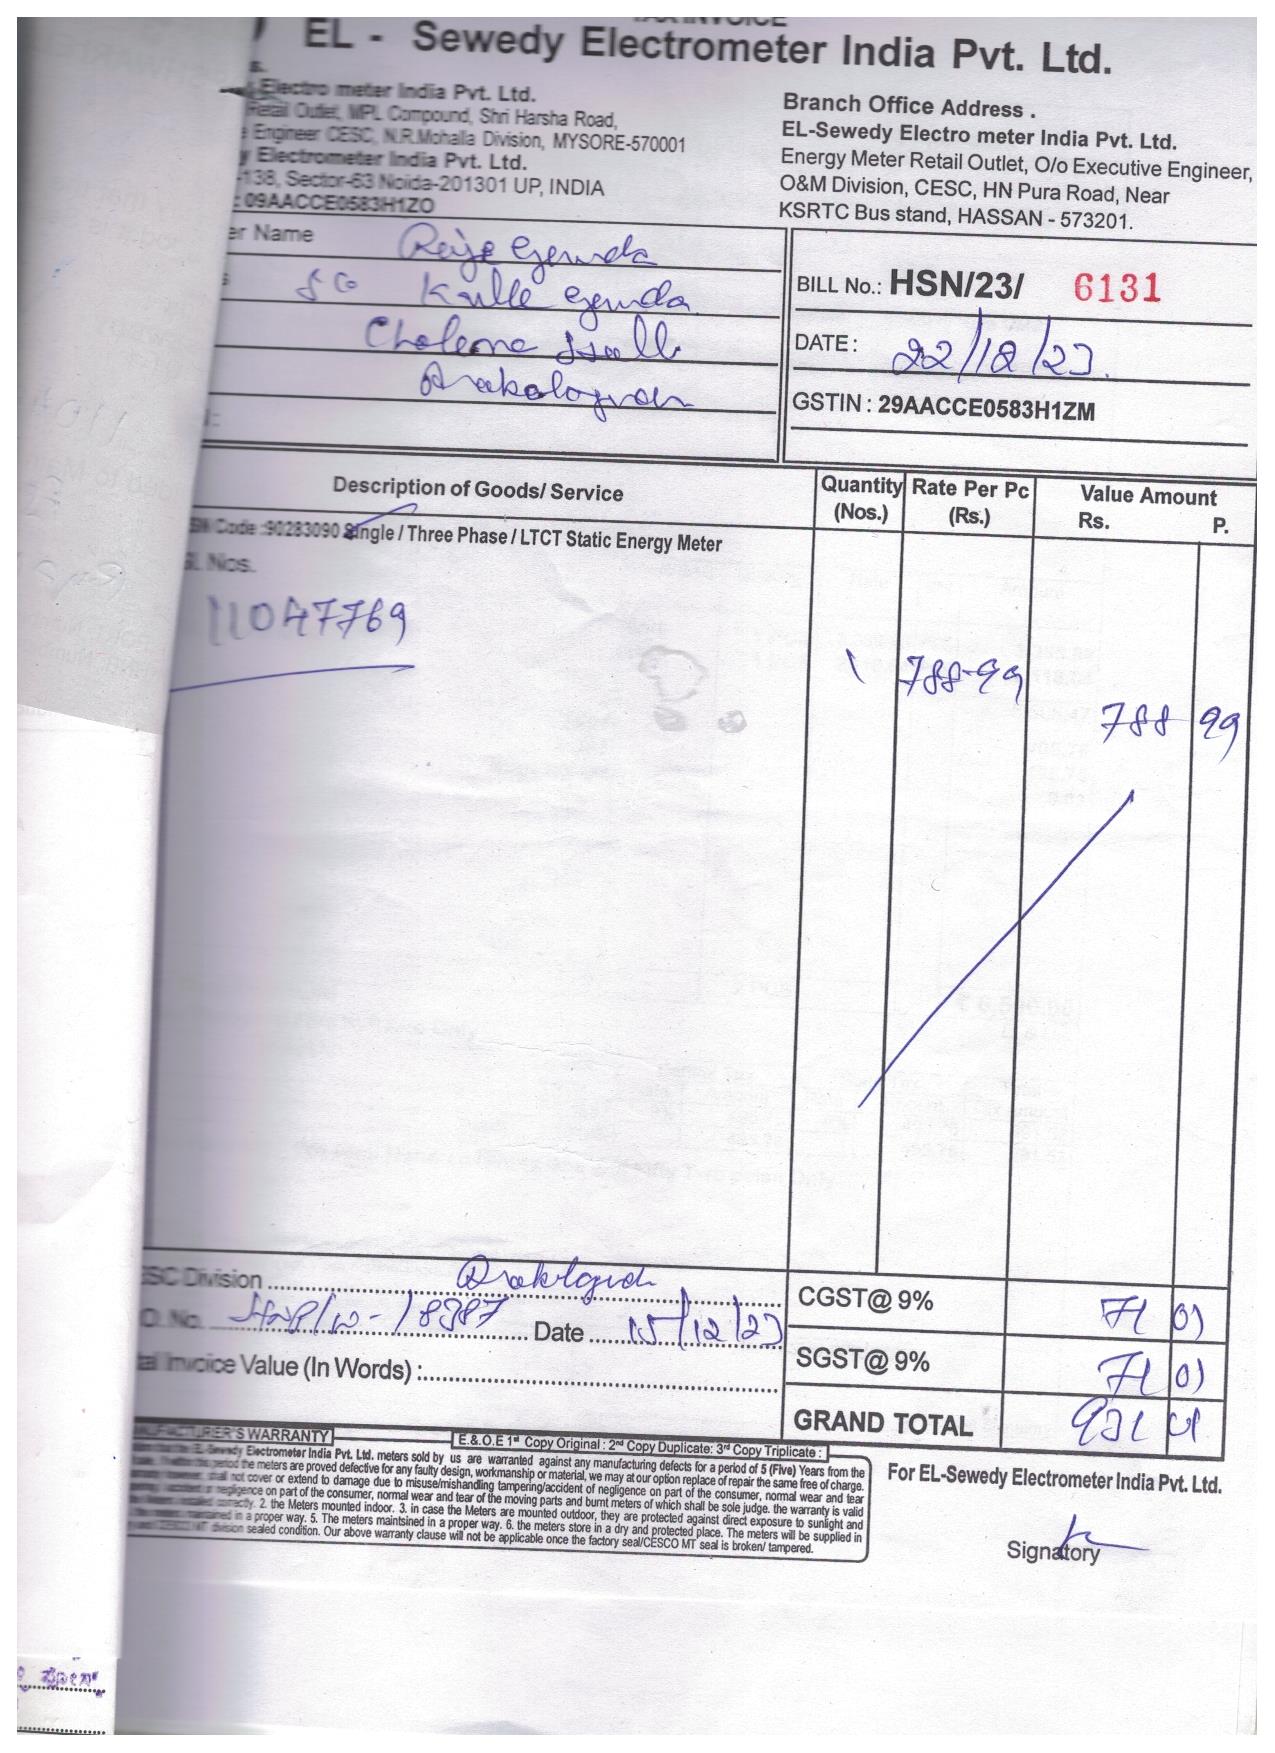 TAX INVOICE
EL - Sewedy Electrometer India Pvt. Ltd.
Electro meter India Pvt. Ltd.
Retail Outlet, MPL Compound, Shri Harsha Road,
Engineer CESC, N.R.Mohalla Division, MYSORE-570001
y Electrometer India Pvt. Ltd.
-138, Sector-63 Noida-201301 UP, INDIA
: 09AACCE0583H1ZO
Branch Office Address .
EL-Sewedy Electro meter India Pvt. Ltd.
Energy Meter Retail Outlet, O/o Executive Engineer,
O&M Division, CESC, HN Pura Road, Near
KSRTC Bus stand, HASSAN - 573201.
er Name Raje Gowda
s/o Kalle Gowda
BILL No.: HSN/23/ 6131
DATE : 22/12/23.
GSTIN : 29AACCE0583H1ZM
Description of Goods/ Service Quantity (Nos.) Rate Per Pc (Rs.) Value Amount Rs. P.
SN Code :90283090 Single / Three Phase / LTCT Static Energy Meter
SL Nos.
11047769
1 788-99 788 99
SC Division
O. No. Date 15/12/23
tal Invoice Value (In Words) :
CGST@ 9% 71 01
SGST@ 9% 71 01
GRAND TOTAL 931 01
MANUFACTURER'S WARRANTY
E.& O.E 1st Copy Original : 2nd Copy Duplicate: 3rd Copy Triplicate :
EL-Sewedy Electrometer India Pvt. Ltd. meters sold by us are warranted against any manufacturing defects for a period of 5 (Five) Years from the
period the meters are proved defective for any faulty design, workmanship or material, we may at our option replace of repair the same free of charge.
shall not cover or extend to damage due to misuse/mishandling tampering/accident of negligence on part of the consumer, normal wear and tear
negligence on part of the consumer, normal wear and tear of the moving parts and burnt meters of which shall be sole judge. the warranty is valid
installed correctly. 2. the Meters mounted indoor. 3. in case the Meters are mounted outdoor, they are protected against direct exposure to sunlight and
maintained in a proper way. 5. The meters maintsined in a proper way. 6. the meters store in a dry and protected place. The meters will be supplied in
MT division sealed condition. Our above warranty clause will not be applicable once the factory seal/CESCO MT seal is broken/ tampered.
For EL-Sewedy Electrometer India Pvt. Ltd.
Signatory